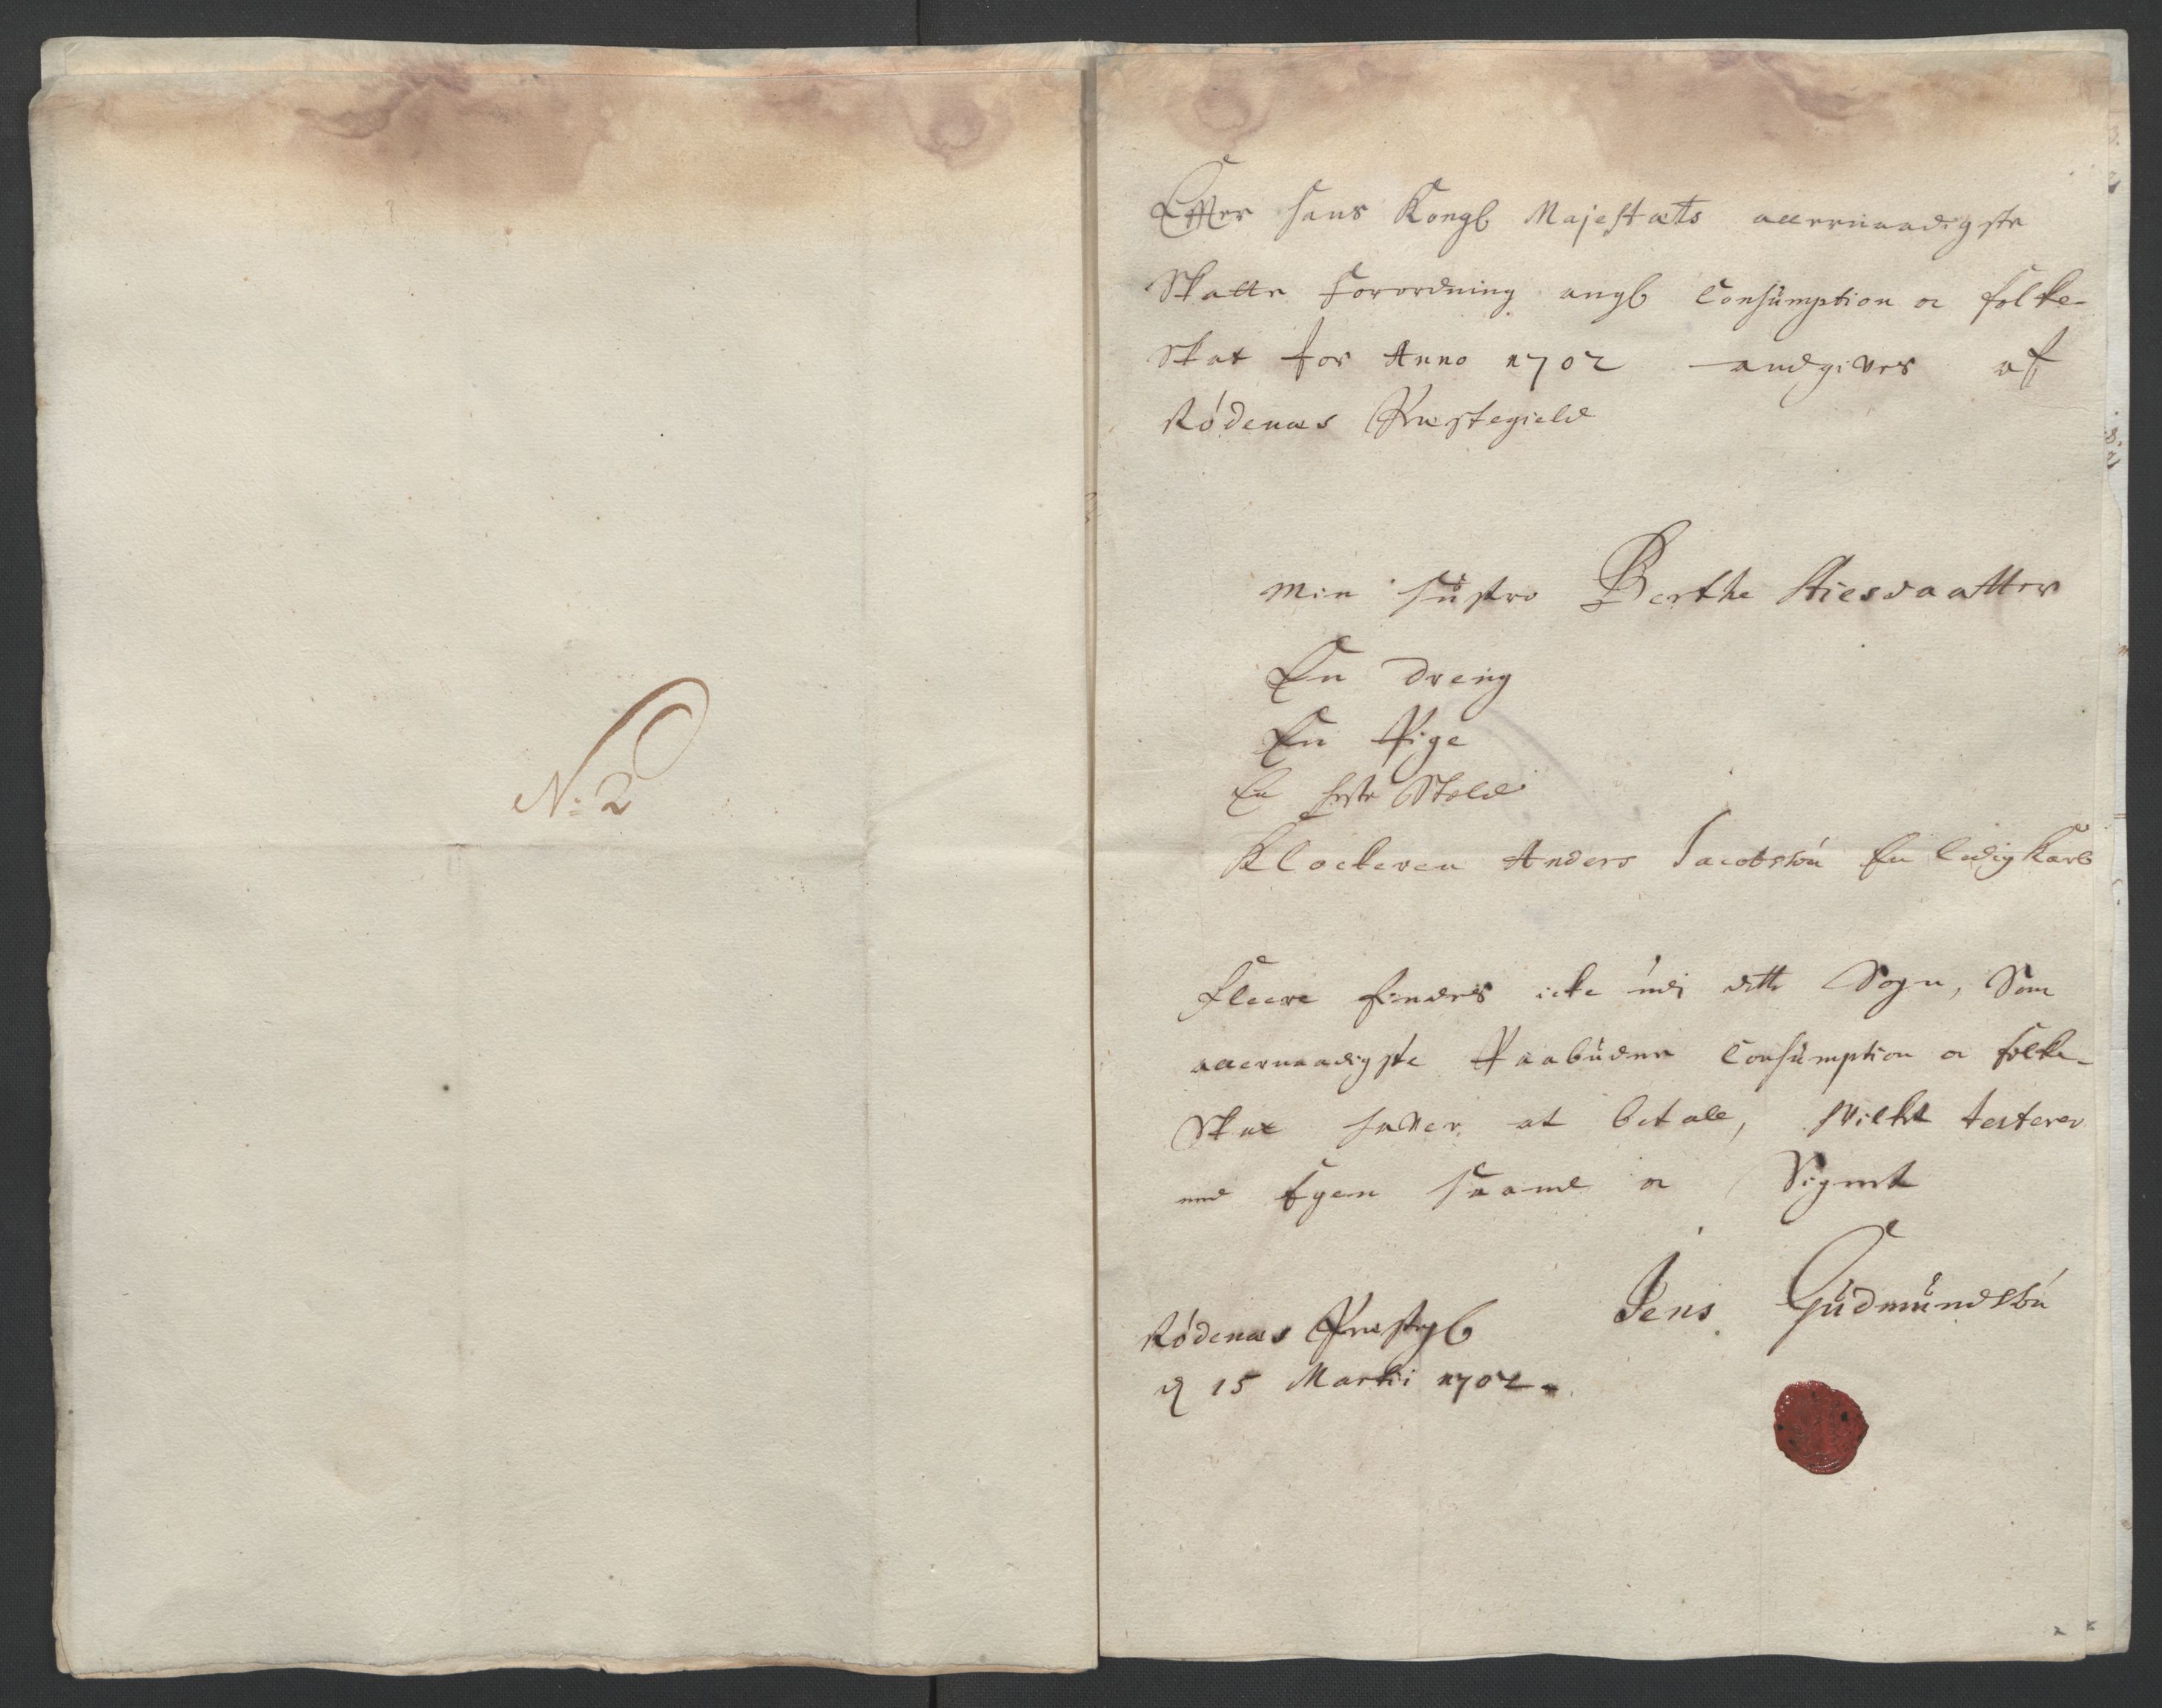 N: 2
Effter hans Kongl Majestæts allernaadigste
Skatte Forordning angl Consumption oc folke-
Skat for Anno 1702 andgives af
Rødenæs Præstegield
Min hustro Berthe Stiesdaatter
En Dreng
En Pige
En heste Stald
Klockeren Anders Jacobsøn En ledig Karl
Fleere findes icke udi dette Sogn, Som
allernaadigste Paabudne Consumption oc folke-
Skat hafver at betale, hvilket testerer
med Egen haand oc Signet
Jens Gudmundsøn
Rødenæs Præstgl
d 15 Martii 1702.